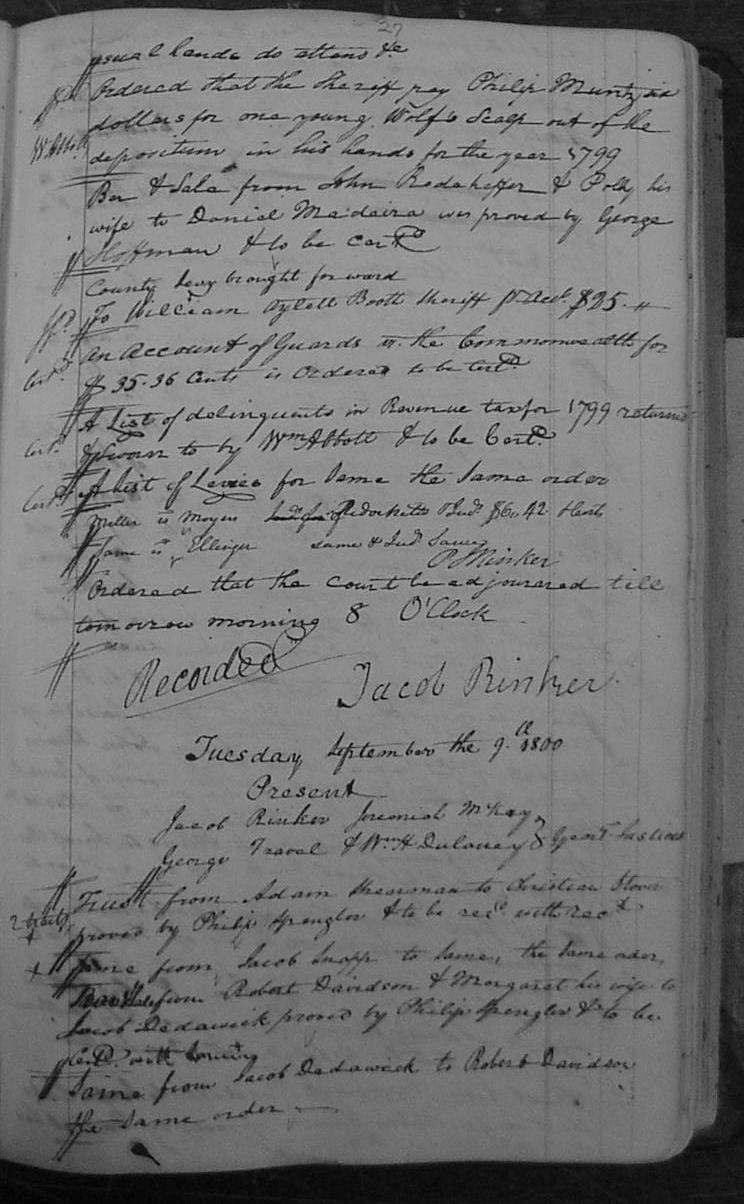 27
usual hands do attend &c
Ordered that the Sheriff pay Philip Muntz six
dollars for one young Wolf's Scalp out of the
deposition in his hands for the year 1799
Bar & Sale from John Redeheffer & Polly his
wife to Daniel Madaira was proved by George
Hoffman & to be Certd
County Levy brought forward
To William Aylett Booth Sheriff pr Acct. $25. "
An Account of Guards vs. the Commonwealth for
$ 35.36 Cents is Ordered to be Certd
Certd
A List of delinquents in Revenue tax for 1799 returned
Cert.
& Sworn to by Wm Abbott & to be Certd.
Certd
A List of Levies for Same the Same order
Miller vs Moyers 2 dockitts & Judt $6.42 & Costs
Same vs Ellinger same & Judt Same
Ordered that the Court be adjourned till
tomorrow morning 8 O'Clock
Recorded
Jacob Rinker
Tuesday September the 9.th 1800
Present
Jacob Rinker Jeremiah McKay
George Fravel & Wm H Dulaney } Gent. Justices
Trust from Adam Shearman to Christian Stover
proved by Philip Spengler & to be recd with rect
Same from Jacob Snapp to Same, the Same order
Bar & Sale from Robert Davidson & Margaret his wife to
Jacob Dedawick proved by Philip Spengler & to be
Certd. with
Same from Jacob Dedawick to Robert Davidson
the Same order